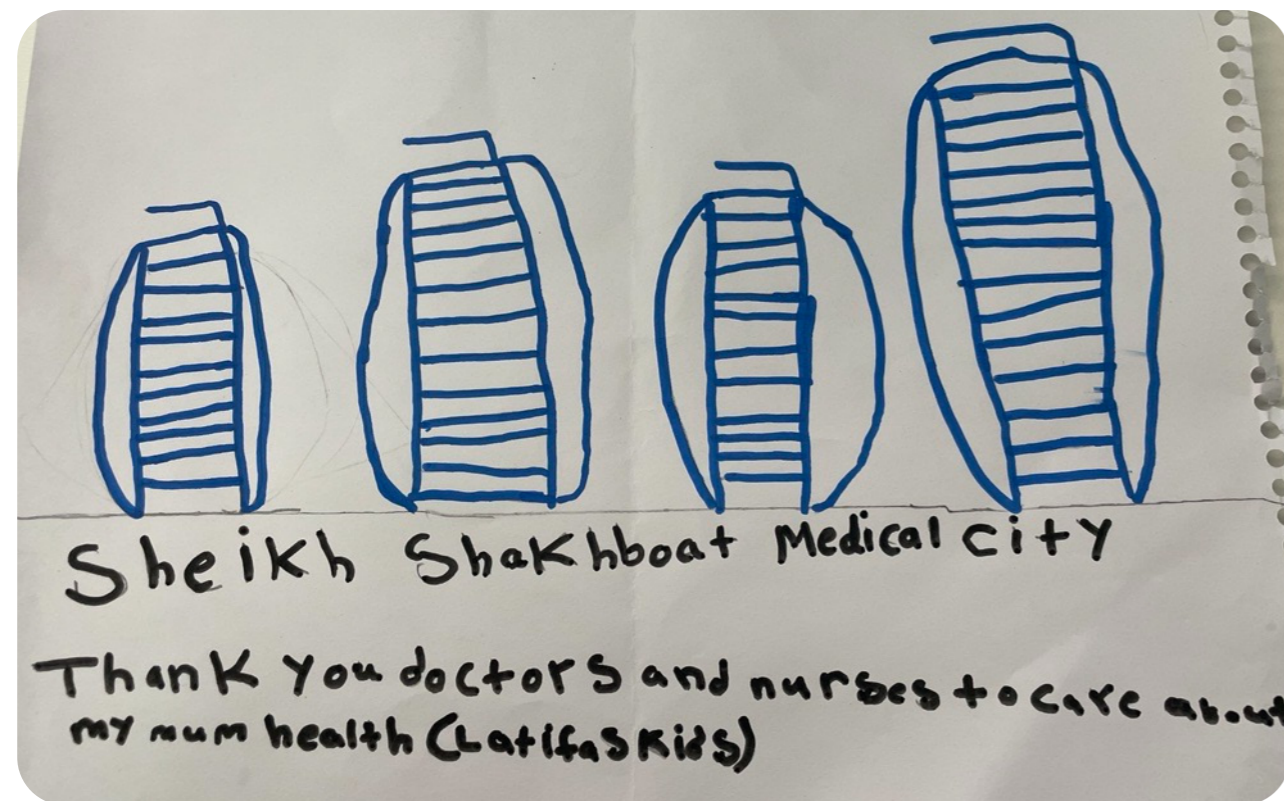 Sheikh Shakhboat Medical city
Thank you doctors and nurses to care about
my mum health (Latifas kids)